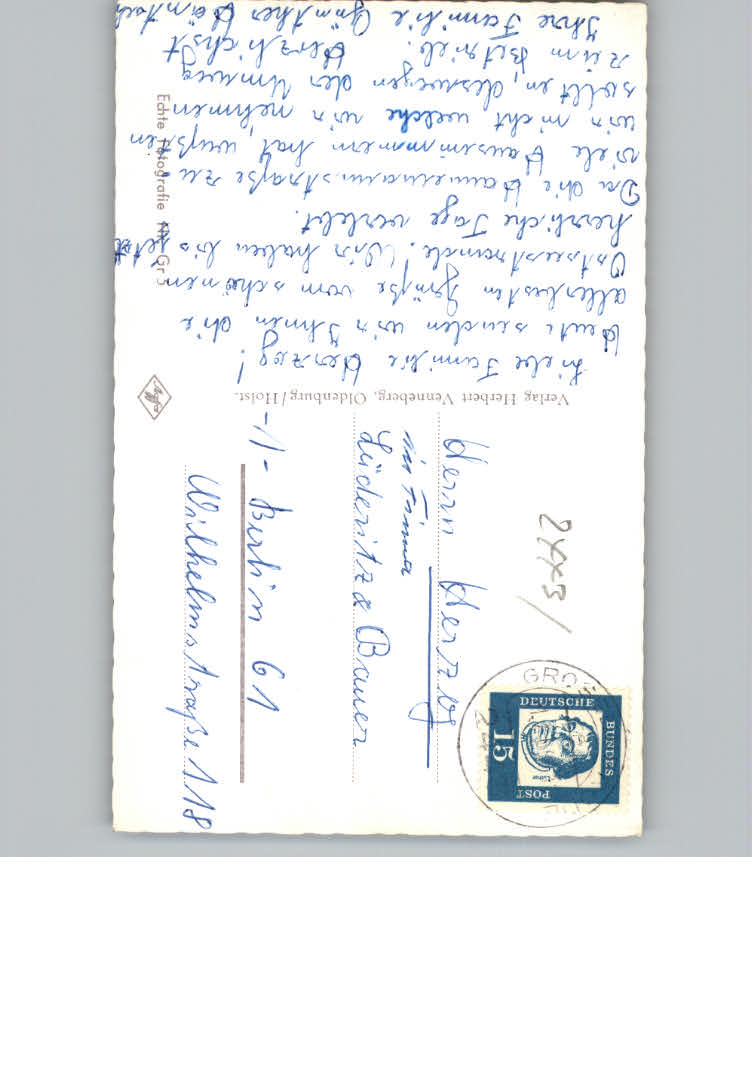 Liebe Familie Herzog!
Heute senden wir Ihnen die
allerbesten Grüße vom schönen
Ostseestrande. Wir haben bis jetzt
herrliche Tage verlebt.
Da die Hausnummern
viele Hausnummern hat, wußten
wir nicht welche wir nehmen
sollten, deswegen der Umweg
zum Betrieb. Herzlichst
Ihre Familie Günther
Verlag Herbert Venneberg, Oldenburg/Holst.
Echte Fotografie NN Gr 5
Agfa
Herrn Herzog
in Firma
Lüderitz & Bauer
-1- Berlin 61
Wilhelmstraße 118
2443/
GRO
DEUTSCHE
BUNDES
POST
15
Luther